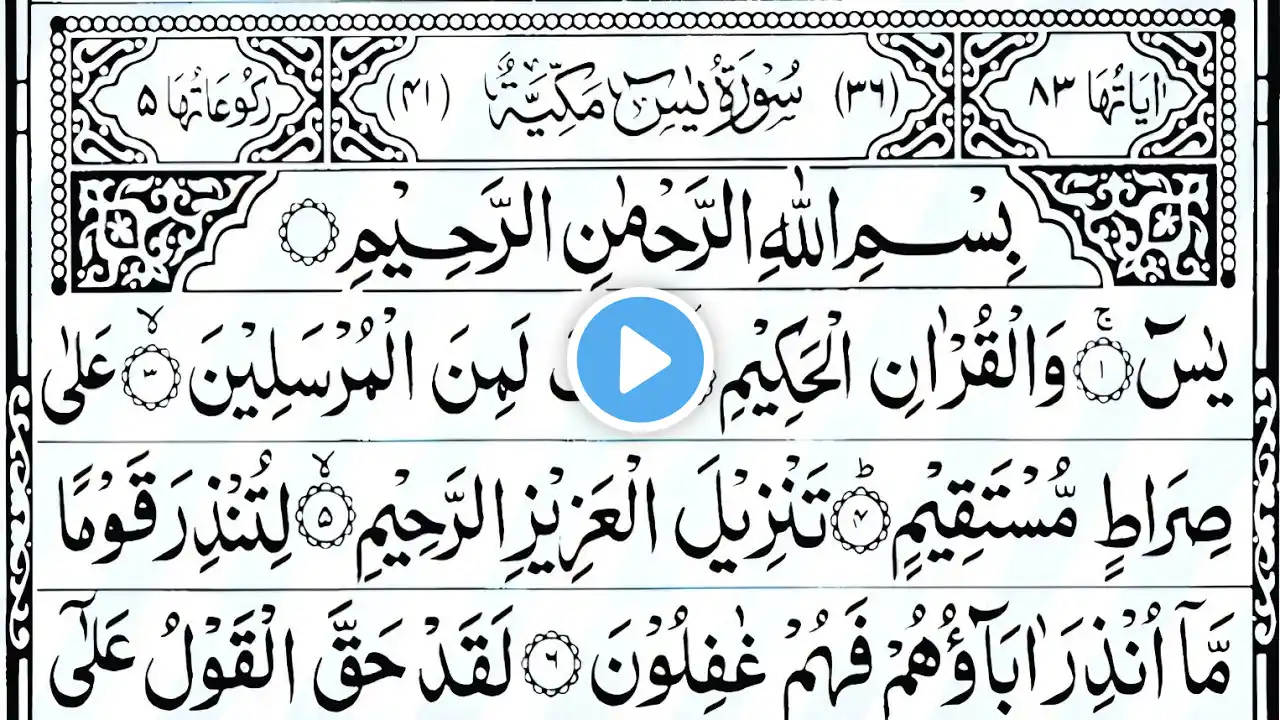 اٰيَاتُهَا ٨٣
(٣٦) سُوْرَةُ يٰسٓ مَكِّيَّةٌ (٤١)
رُكُوْعَاتُهَا ٥
بِسْمِ اللّٰهِ الرَّحْمٰنِ الرَّحِيْمِ
يٰسٓ ۚ ١ وَالْقُرْاٰنِ الْحَكِيْمِ لَمِنَ الْمُرْسَلِيْنَ ۙ ٣ عَلٰى
صِرَاطٍ مُّسْتَقِيْمٍ ؕ ٤ تَنْزِيْلَ الْعَزِيْزِ الرَّحِيْمِ ۙ ٥ لِتُنْذِرَ قَوْمًا
مَّآ اُنْذِرَ اٰبَآؤُهُمْ فَهُمْ غٰفِلُوْنَ ٦ لَقَدْ حَقَّ الْقَوْلُ عَلٰٓى